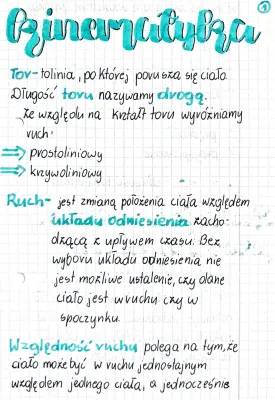 Dzinamatyka
1
Tor- to linia, po której porusza się ciało.
Długość toru nazywamy drogą.
Ze względu na kształt toru wyróżniamy
ruch:
⇒ prostoliniowy
⇒ krzywoliniowy
Ruch- jest zmianą położenia ciała względem
układu odniesienia zacho-
dzącą z upływem czasu. Bez
wyboru układu odniesienia nie
jest możliwe ustalenie, czy dane
ciało jest w ruchu czy w
spoczynku.
Względność ruchu polega na tym, że
ciało może być w ruchu jednostajnym
względem jednego ciała, a jednocześnie